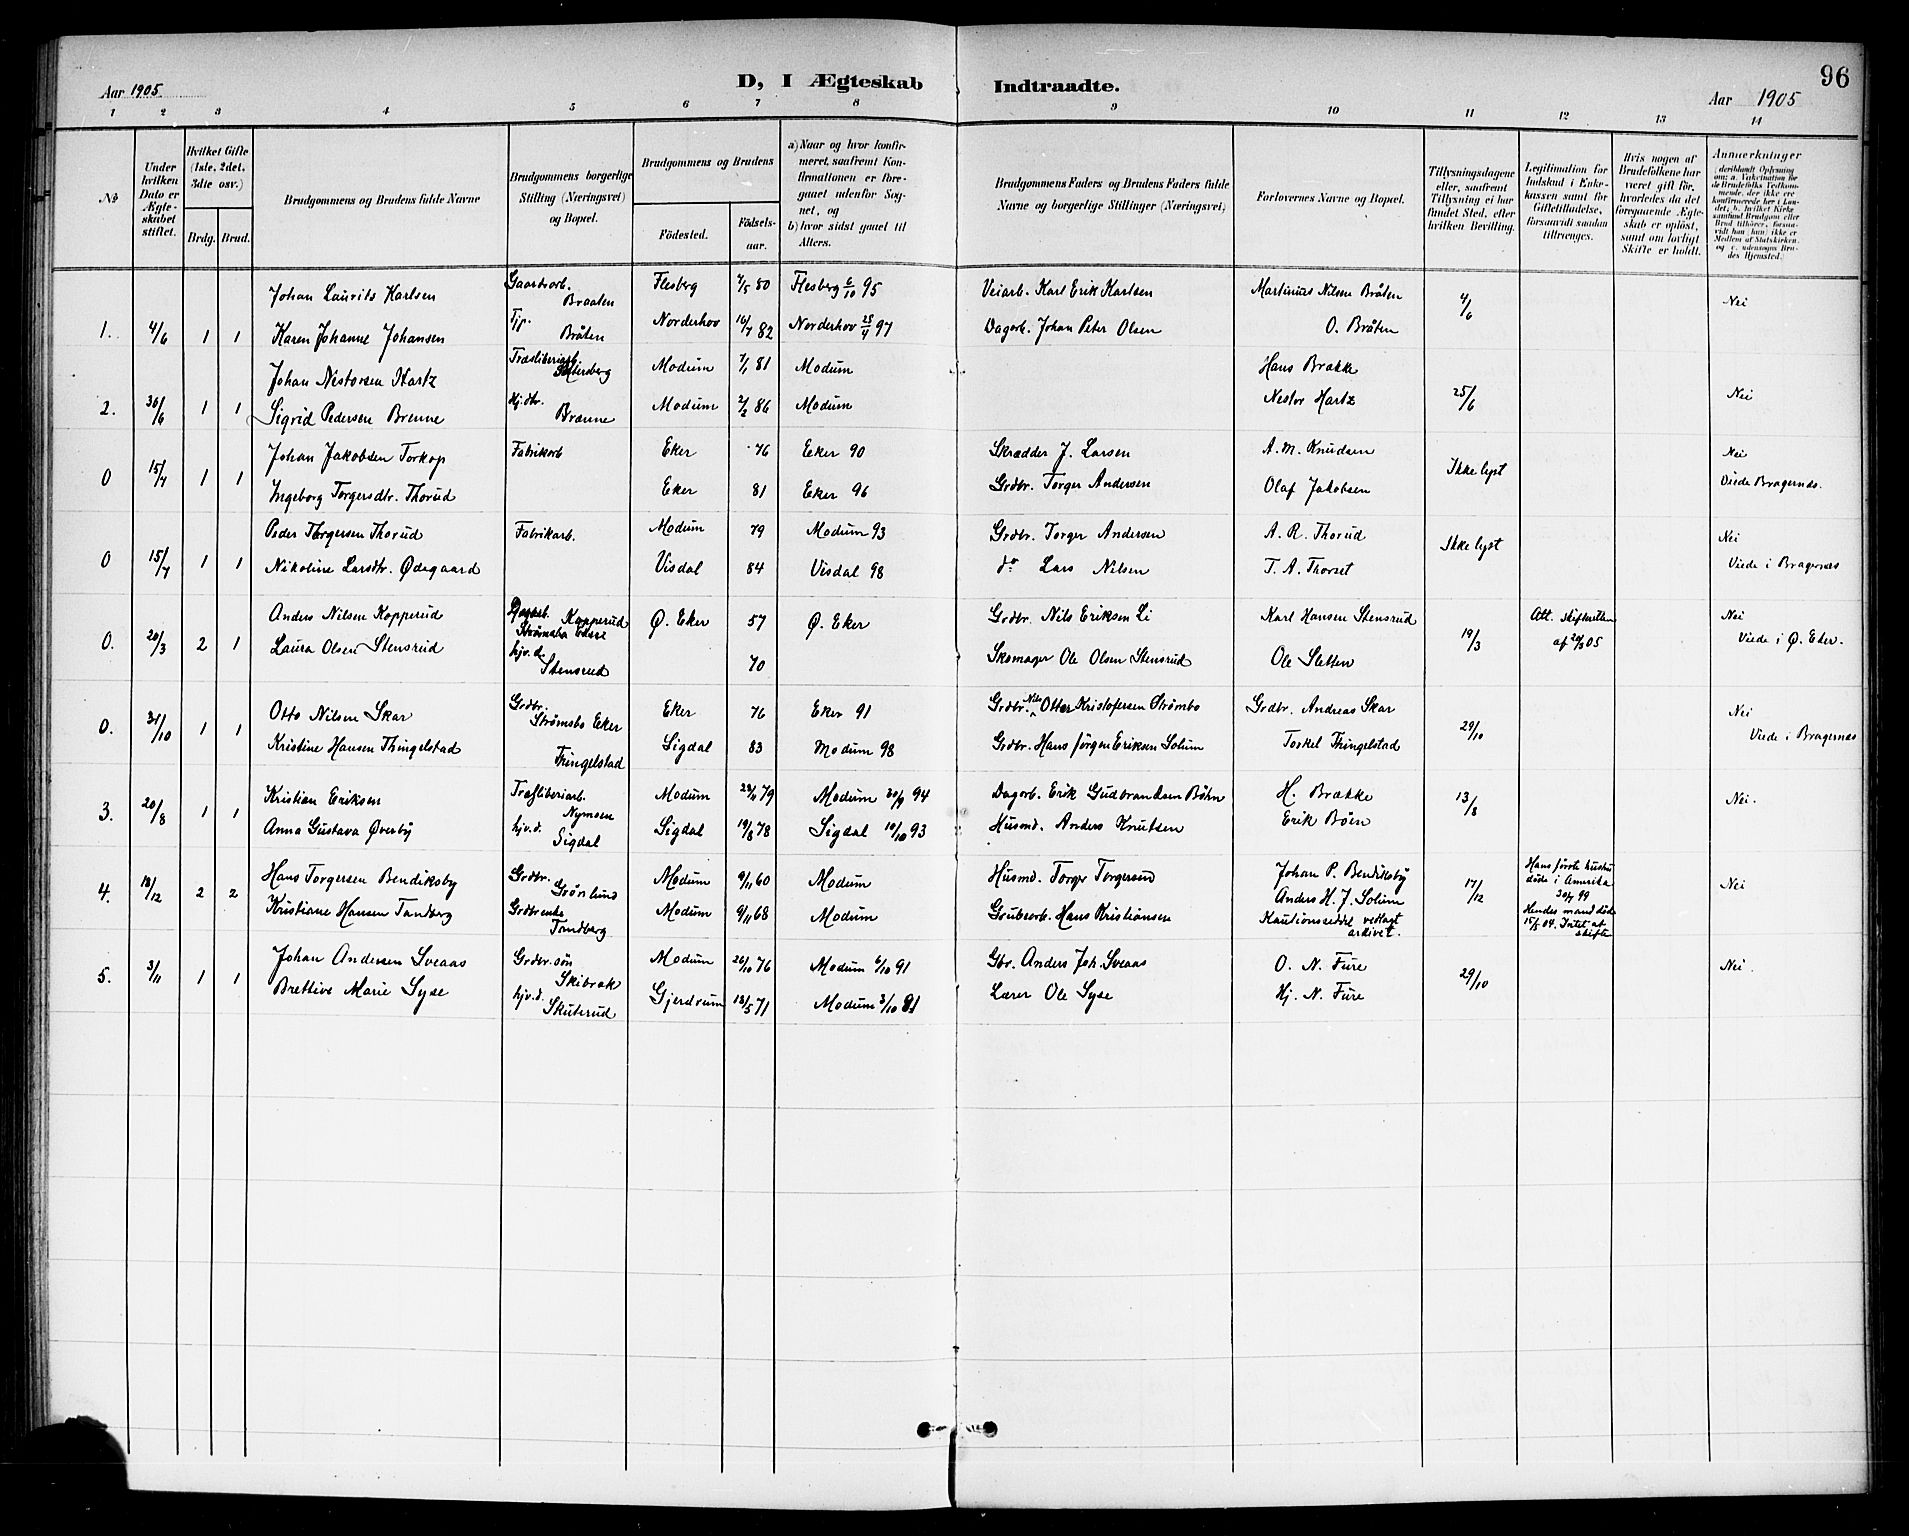 96
Aar 1905.
D, I Ægteskab Indtraadte.
Aar 1905
1 2 3 4 5 6 7 8 9 10 11 12 13 14
No
Under hvilken Dato er Ægteskabet stiftet.
Hvilket Gifte (1ste, 2det, 3die osv.)
Brdg. Brud.
Brudgommens og Brudens fulde Navne
Brudgommens borgerlige Stilling (Næringsvei) og Bopæl.
Brudgommens og Brudens
Födested. Födsels-aar.
a) Naar og hvor konfirmeret, saafremt Konfirmationen er foregaaet udenfor Sognet, og
b) hvor sidst gaaet til Alters.
Brudgommens Faders og Brudens Faders fulde Navne og borgerlige Stillinger (Næringsvei)
Forlovernes Navne og Bopæl.
Tillysningsdagene eller, saafremt Tillysning ei har fundet Sted, efter hvilken Bevilling.
Legitimation for Indskud i Enkekassen samt for Giftetilladelse, forsaavidt saadan tiltrænges.
Hvis nogen af Brudefolkene har været gift før, hvorledes da det foregaaende Ægteskab er opløst, samt om lovligt Skifte er holdt.
Anmerkninger (deriblandt Oplysning om: a. Vakcination for de Brudefolks Vedkommende, der ikke ere konfirmerede her i Landet; b. hvilket Kirkesamfund Brudgom eller Brud tilhører, forsaavidt han (hun) ikke er Medlem af Statskirken, og c. udensogns Brudes Hjemsted.)
Johan Laurits Karlsen Gaardsarb. Braaten Flesberg 7/5 80 Flesberg 6/10 95 Veiarb. Karl Erik Karlsen Martinius Nilsen Bråten 4/6 Nei
1. 4/6 1 1 Karen Johanne Johansen Tjp. Bråten Norderhov 16/7 82 Norderhov 25/4 97 Dagarb. Johan Peter Olsen O. Bråten
Johan Nestorsen Hartz Træsliberiarb. Modum 7/1 81 Modum Hans Brakke
2. 30/6 1 1 Sigrid Pedersen Brenne Hj.dtr. Brænne Modum 2/2 86 Modum Nestor Hartz 25/6 Nei
Johan Jakobsen Torkop Fabrikarb Eker 76 Eker 90 Skrædder J. Larsen A. M. Knudsen Ikke lyst Nei
0 15/7 1 1 Ingeborg Torgersdtr. Thorud Eker 81 Eker 96 Grdbr. Torger Andersen Olaf Jakobsen Viede Bragernæs.
Peder Thorgersen Thorud Fabrikarb. Modum 79 Modum 93 Grdbr. Torger Andersen A. R. Thorud Ikke lyst Nei
0 15/7 1 1 Nikoline Larsdtr. Ødegaard Visdal 84 Visdal 98 do Lars Nilsen T. A. Thorset Viede i Bragernæs
Anders Nilsen Kopperud Kopperud Ø. Eker 57 Ø. Eker Grdbr. Nils Eriksen Li Karl Hansen Stensrud 19/3 Att. skifteretten af 20/3 05 Nei
0. 20/3 2 1 Laura Olsen Stensrud hjv.d. Stensrud 70 Skomager Ole Olsen Stensrud Ole Sletten Viede i Ø. Eker.
Otto Nilsen Skar Grdbr. Strømsbo Eker Eker 76 Eker 91 Grdbr. Nils Otter Kristofersen Strömbo Grdbr. Andreas Skar Nei
0. 31/10 1 1 Kristine Hansen Thingelstad Thingelstad Sigdal 83 Modum 98 Grdbr. Hans Jörgen Eriksen Solum Torkel Thingelstad 29/10 Viede i Bragernæs
Kristian Eriksen Træsliberiarb. Nymoen Modum 79 Modum 30/9 94 Dagarb. Erik Gudbrandsen Böhn H. Brække 13/8 Nei.
3. 20/8 1 1 Anna Gustava Øverby hjv.d. Sigdal Sigdal 19/8 78 Sigdal 10/10 93 Husmd. Anders Knutsen Erik Böen
Hans Torgersen Bendiksby Grdbr. Grönlund Modum 9/11 60 Modum Husmd. Torger Torgersen Johan P. Bendiksby 17/12 Hans förste hustru döde i Amerika 20/7 99 Nei
4. 18/12 2 2 Kristiane Hansen Tandberg Grdbr.enke Tandberg Modum 9/11 68 Modum Grubearb. Hans Kristiansen Anders H. J. Solum Kautionsseddel vedlagt arkivet. Hendes mand döde 15/5 04. Intet at skifte
Johan Andersen Sveaas Grdbr. sön Skibrak Modum 26/10 76 Modum 6/10 91 Gbr. Anders Joh. Sveaas O. N. Fure 29/10 Nei.
5. 3/11 1 1 Brettive Marie Syse hjv.d. Skuterud Gjerdrum 18/5 71 Modum 3/10 81 Lærer Ole Syse Hj. N. Fure